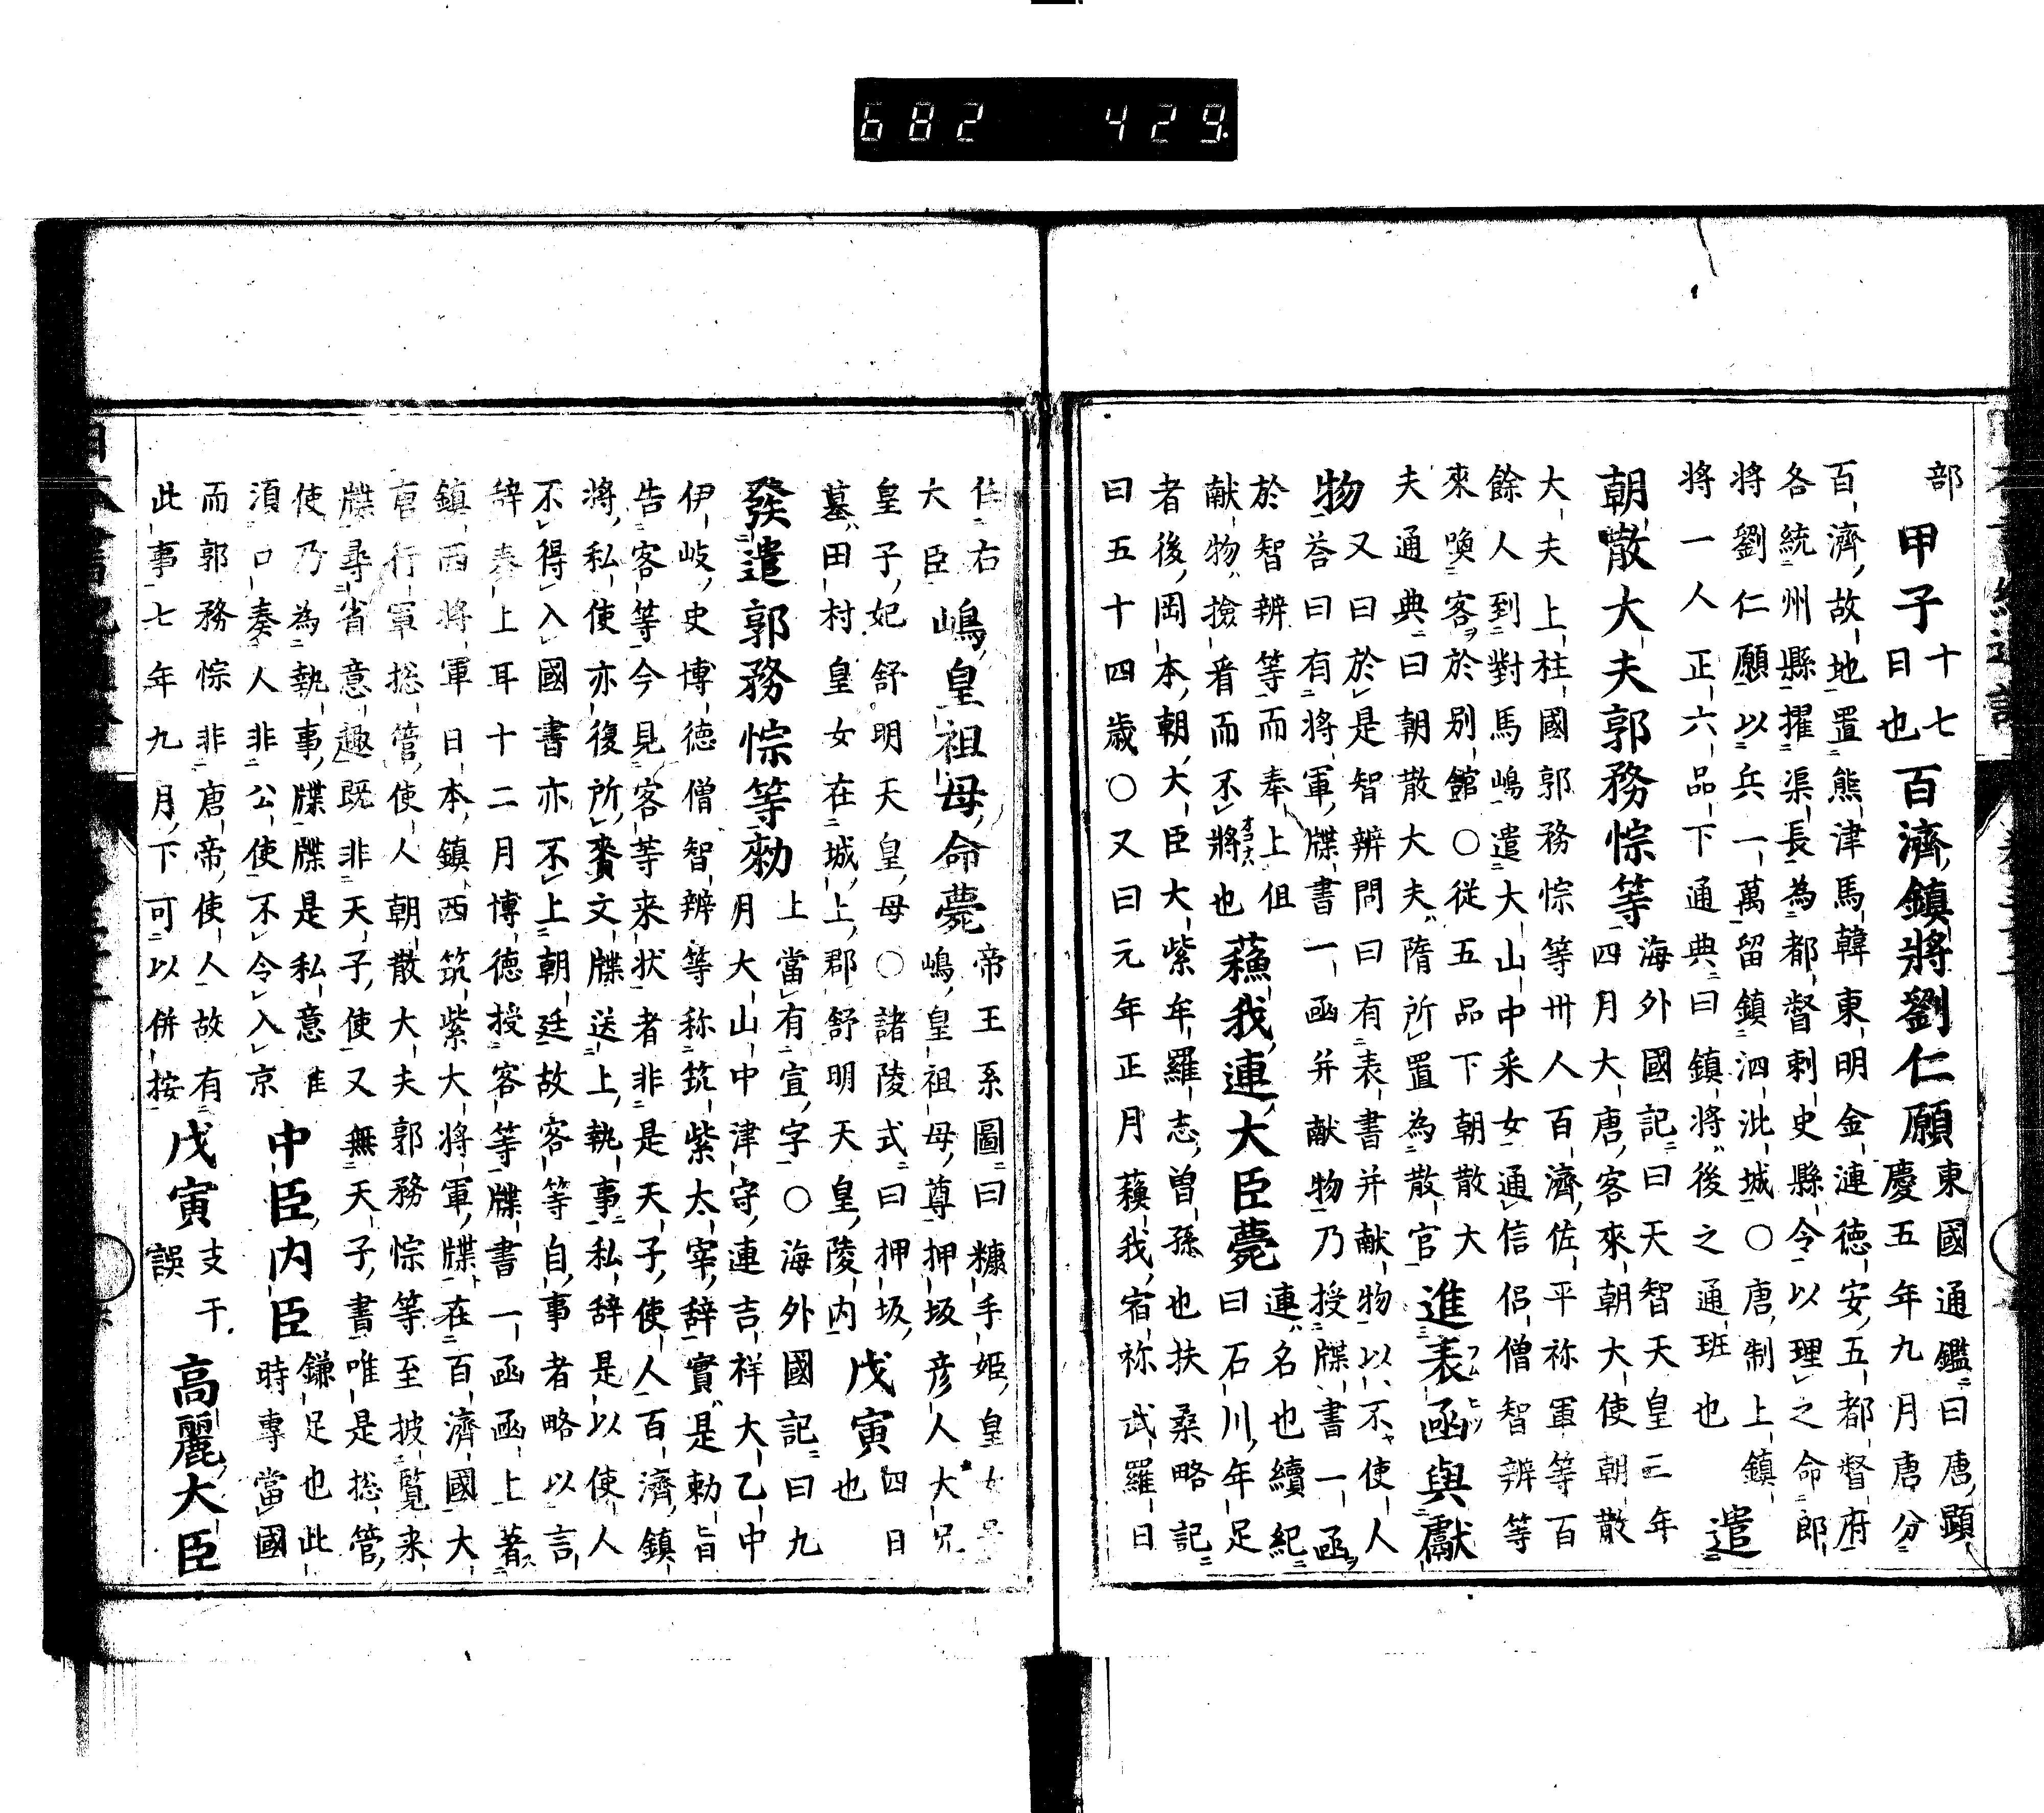 部 甲子 十七
日也 百濟鎮將劉仁願 東國通鑑曰唐顯
慶五年九月唐分
百濟故地置熊津馬韓東明金漣德安五都督府
各統州縣擢渠長為都督刺史縣令以理之命郎
將劉仁願以兵一萬留鎮泗沘城〇唐制上鎮
將一人正六品下通典曰鎮將後之通班也 遣
朝散大夫郭務悰等 海外國記曰天智天皇三年
四月大唐客來朝大使朝散
大夫上柱國郭務悰等卅人百濟佐平祢軍等百
餘人到對馬嶋遣大山中采女通信侶僧智辨等
來喚客於別館〇從五品下朝散大
夫通典曰朝散大夫隋所置為散官 進表函與獻
物 又曰於是智辨問曰有表書并献物以不使人
荅曰有將軍牒書一函并献物乃授牒書一函
於智辨等而奉上但
献物撿看而不將也 蘓我連大臣薨 連名也續紀
曰石川年足
者後岡本朝大臣大紫牟羅志曽孫也扶桑略記
曰五十四歳〇又曰元年正月蘓我宿祢武羅日
任右
大臣 嶋皇祖母命薨 帝王系圖曰糠手姫皇女号
嶋皇祖母尊押坂彦人大兄
皇子妃舒明天皇母〇諸陵式曰押坂
墓田村皇女在城上郡舒明天皇陵内 戊寅 四日
也
發遣郭務悰等勑 上當有宣字〇海外國記曰九
月大山中津守連吉祥大乙中
伊岐史博徳僧智辨等称筑紫太宰辞實是勅旨
告客等今見客等来状者非是天子使人百濟鎮
將私使亦復所賚文牒送上執事私辞是以使人
不得入國書亦不上朝廷故客等自事者略以言
辞奏上耳十二月博徳授客等牒書一函函上著
鎮西將軍日本鎮西筑紫大將軍牒在百濟國大
唐行軍捴管使人朝散大夫郭務悰等至披覧来
牒尋省意趣既非天子使又無天子書唯是捴管
使乃為執事牒牒是私意唯
須口奏人非公使不令入京 中臣内臣 鎌足也此
時專當國
而郭務悰非唐帝使人故有
此事七年九月下可以併按 戊寅 支干
誤 高麗大臣
682 429